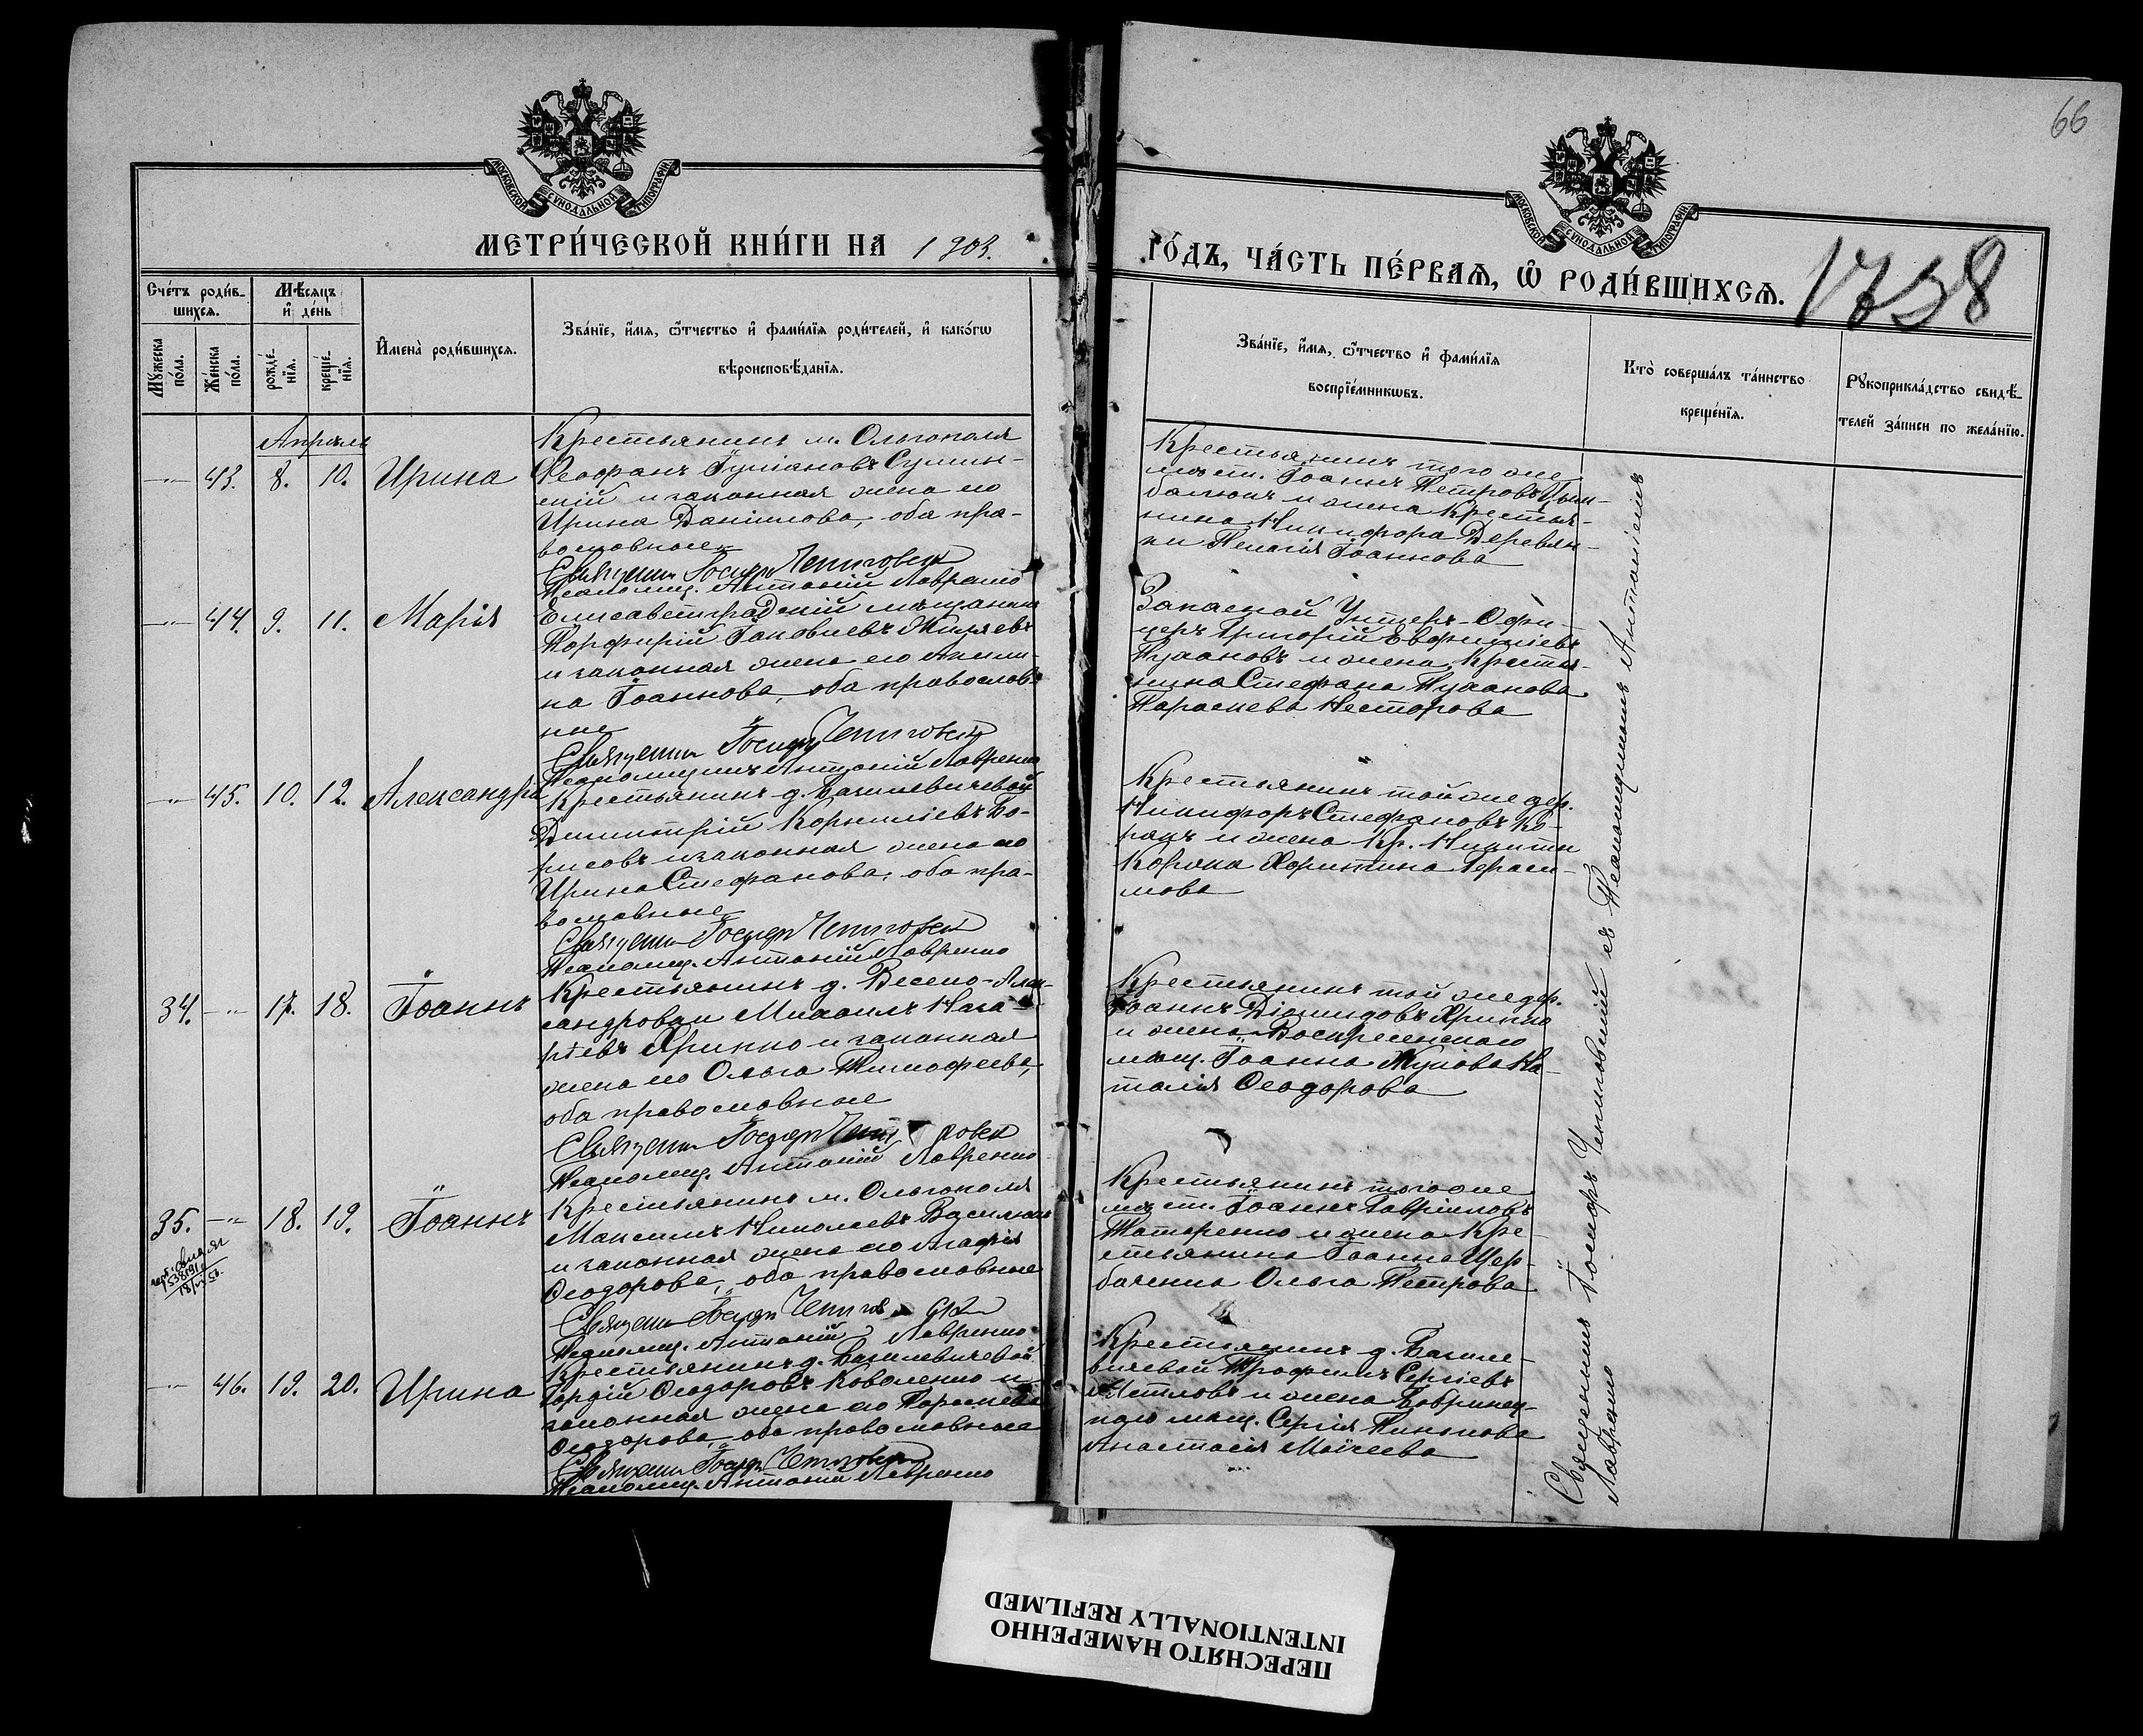 66
МОСКОВСКОЙ СѴНОДАЛЬНОЙ ТИПОГРАФІИ
МОСКОВСКОЙ СѴНОДАЛЬНОЙ ТИПОГРАФІИ
МЕТРИ́ЧЕСКОЙ КНИ́ГИ НА 1903.
ГО́ДЪ, ЧА́СТЬ ПЕ́РВАЯ, Ѡ҆ РОДИ́ВШИХСЯ. 1738
Сче́тъ роди́в-
шихся.
Мѣ́сяцъ
и҆ де́нь
Мꙋ́жеска
по́ла.
Же́нска
по́ла.
рожде́-
нїя.
креще́-
нїя.
И҆мена̀ роди́вшихся.
Зва́нїе, и҆́мя, ѻ҆́тчество и҆ фами́лїя роди́телей, и҆ како́гѡ
вѣроисповѣ́данїя.
Зва́нїе, и҆́мя, ѻ҆́тчество и҆ фами́лїя
воспрїе́мникѡвъ.
Кто̀ соверша́лъ та́инство
креще́нїя.
Рꙋкоприкла́дство свидѣ́-
телей за́писи по жела́нїю.
Апрѣль
43. 8. 10. Ирина
Крестьянинъ м. Ольгополя
Ѳеофанъ
скій и законная жена его
Ирина Даніилова, оба пра-
вославные
Священникъ Іосифъ Чепиговскій
Псаломщ. Антоній Лавренко
Крестьянинъ того же
мѣст. Іоаннъ Петровъ
и жена крестья-
нина Никифора Деревян-
ки Пелагія Іоаннова
44. 9. 11. Марія
Елисаветградскій мѣщанинъ
Порфирій Іаковлевъ
и законная жена его Акили-
на Іоаннова, оба православ-
ные
Священникъ Іосифъ Чепиговскій
Псаломщикъ Антоній Лавренко
Запасной Унтеръ-Офи-
церъ Григорій
и жена крестья-
нина Стефана
Параскева Несторова
45. 10. 12. Александра
Крестьянинъ д. Базилевичевой
Димитрій Корниліевъ Бо-
рисовъ и законная жена его
Ирина Стефанова, оба пра-
вославные
Священникъ Іосифъ Чепиговскій
Псаломщ. Антоній Лавренко
Крестьянинъ той же дер.
Никифоръ Стефановъ Ко-
и жена кр. Никиты
Хористина Гераси-
мова
34. 17. 18. Іоаннъ
Крестьянинъ д. Весело-Алек-
сандровки Михаилъ Наза-
рьевъ Хрипко и законная
жена его Ольга Тимофеева,
оба православные
Священникъ Іосифъ Чепиговскій
Псаломщ. Антоній Лавренко
Крестьянинъ той же дер.
Іоаннъ Діомидовъ Хрипко
и жена Воскресенскаго
мѣщ. Іоанна На-
талія Ѳеодорова
35. 18. 19. Іоаннъ
Крестьянинъ м. Ольгополя
Максимъ Николаевъ
и законная жена его Агафія
Ѳеодорова, оба православные
Священникъ Іосифъ Чепиговскій
Псаломщ. Антоній Лавренко
Крестьянинъ того же
мѣст. Іоаннъ Гавріиловъ
Татаренко и жена кре-
стьянина Іоанна Щер-
Ольга Петрова
46. 19. 20. Ирина
Крестьянинъ д. Базилевичевой
Гордій Ѳеодоровъ Коваленко и
законная жена его Параскева
Ѳеодорова, оба православные
Священникъ Іосифъ Чепиговскій
Псаломщ. Антоній Лавренко
Крестьянинъ д. Базиле-
вичевой Трофимъ Сергіевъ
и жена Бобринец-
каго мѣщ. Сергія
Анастасія Моисеева
Священникъ Іосифъ Чепиговскій съ Псаломщикомъ Антоніемъ
Лавренко
ПЕРЕСНЯТО НАМЕРЕННО
INTENTIONALLY REFILMED